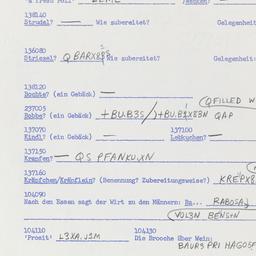 138140
Strudel? — Wie zubereitet? Gelegenheit
136080
Striezel? Wie zubereitet? Gelegenheit:
138120
Bochte? (ein Gebäck) —
(QFILLED W
237005
Bobbe? (ein Gebäck) QAP
137070 137100
Kindl? (ein Gebäck) — Lebkuchen? —
137150
Krapfen? — QS PFANKUXN
137160
Kräpfchen/Kräpflein? (Benennung? Zubereitungsweise?) KREPX8
104090
Nach dem Essen sagt der Wirt zu den Männern: Ba... RABOSAJ
(VOL3N BENSTN
104110 104130
'Prosit' L3XA.J1M Die Brooche über Wein:
BAURS PRI HAGOSF